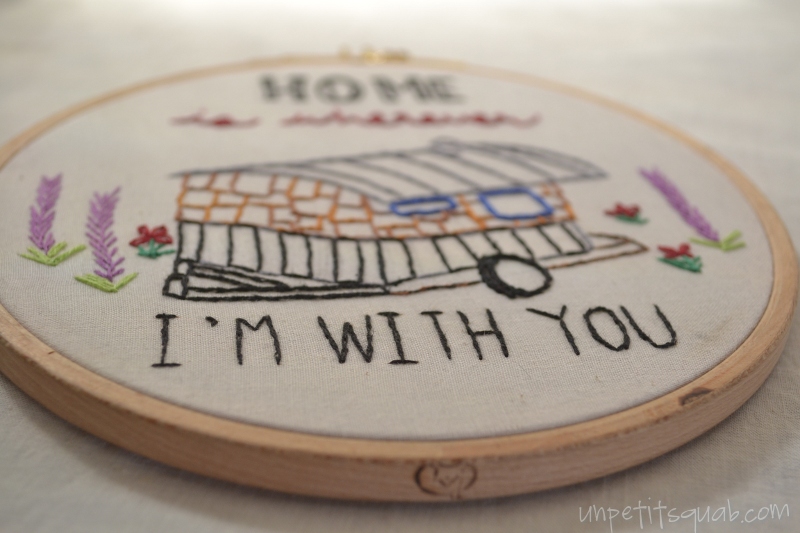 HOME
is wherever
I'M WITH YOU
unpetitsquab.com